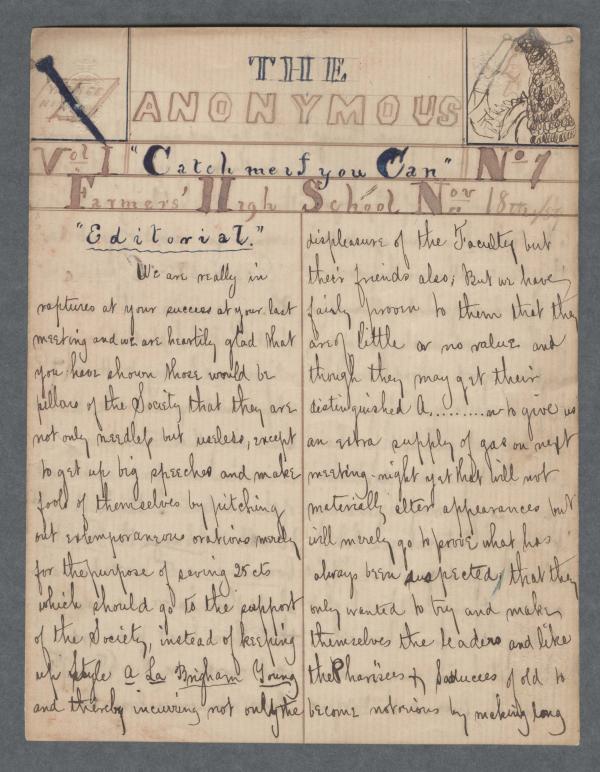 THE
ANONYMOUS
Vol I "Catch me if you Can" No 7
Farmers' High School Nov 18th/59
"Editorial."
We are really in
raptures at your success at your last
meeting and we are heartily glad that
you have shown those would be
pillars of the Society that they are
not only needless but useless, except
to get up big speeches and make
fools of themselves by pitching
out extemporaneous orations merely
for the purpose of saving 25 cts
which should go to the support
of the Society, instead of keeping
up style a La Brigham Young
and thereby incuring not only the
displeasure of the Faculty but
their friends also; But we have
fairly proven to them that they
are of little or no value and
though they may get their
distinguished A.........n to give us
an extra supply of gas on next
meeting-night yet that will not
materially alter appearances but
will merely go to prove what has
always been suspected, that they
only wanted to try and make
themselves the leaders and like
the Pharisees & Saducees of old to
become notorious by making long